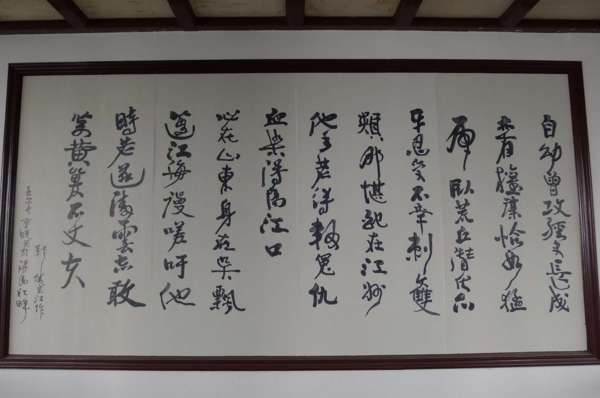 自幼曾攻經史長成
亦有權謀恰如猛
虎臥荒丘潛伏爪
牙忍受不幸刺雙
頰那堪配在江州
他年若得報冤仇
血染潯陽江口
心在山東身在吳飄
蓬江海漫嗟吁他
時若遂凌雲志敢
笑黃巢不丈夫
宋江作
潯陽江畔